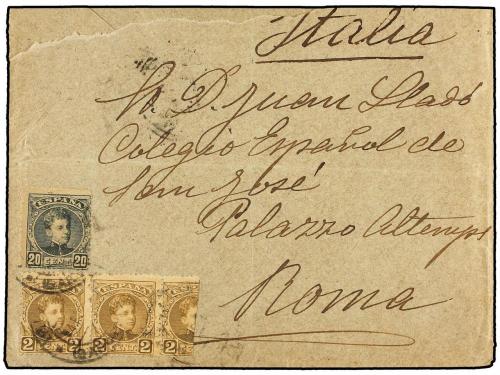 Italia
Sr. D. Juan Lladó
Colegio Español de
San José
Palazzo Altemps
Roma
ESPAÑA
20 CENT.s 20
2 CENT.s 2
2 CENT.s 2
2